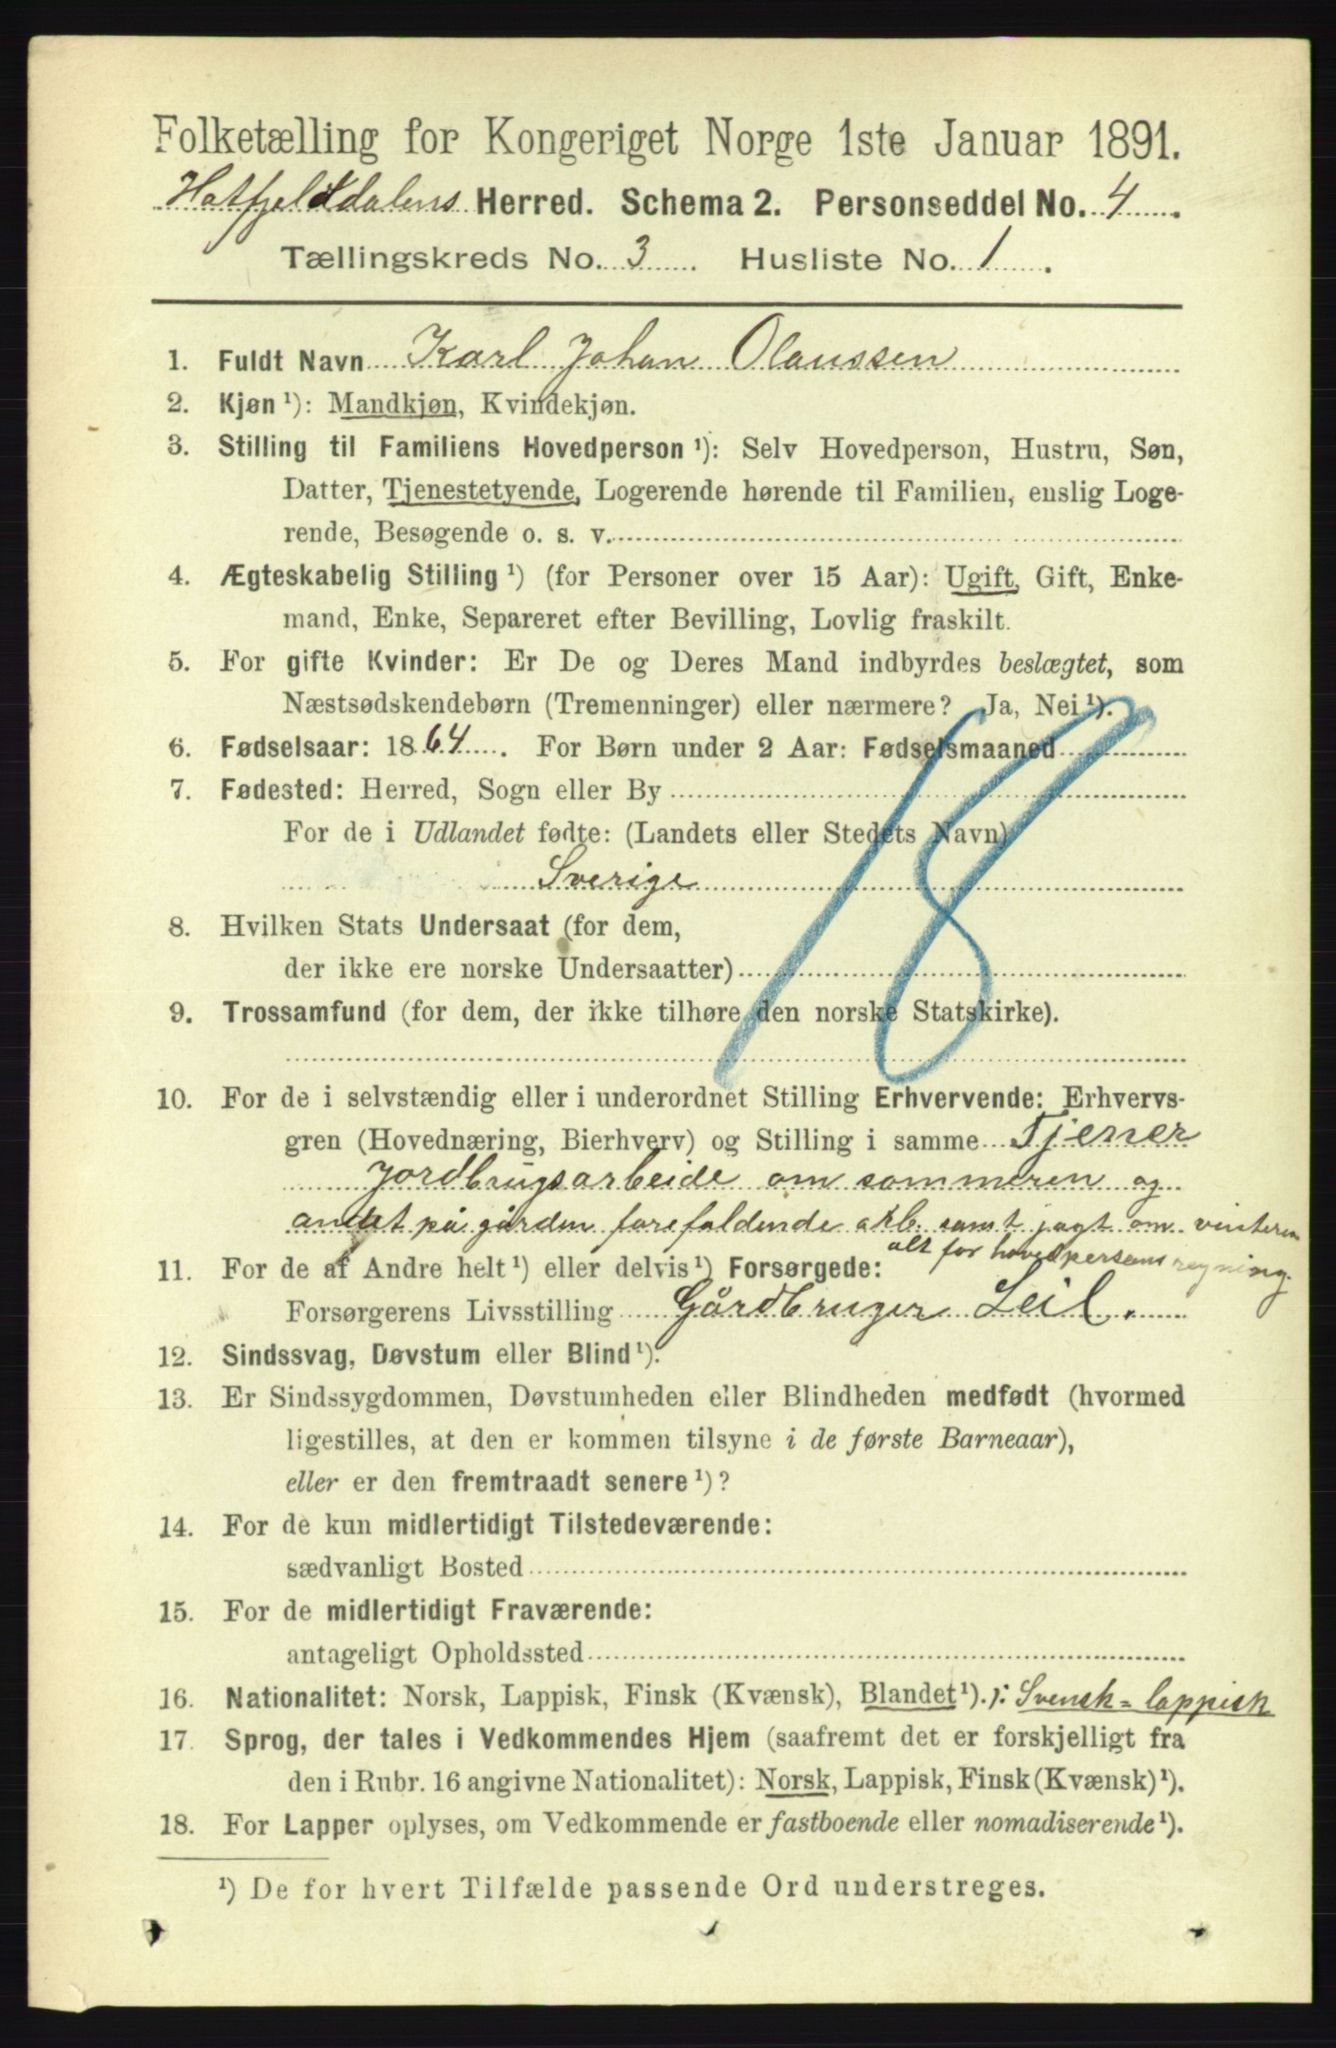 Folketælling for Kongeriget Norge 1ste Januar 1891.
Hatfjelddalens Herred. Schema 2. Personseddel No. 4
Tællingskreds No. 3 Husliste No. 1
1. Fuldt Navn Karl Johan Olaussen
2. Kjøn ¹): Mandkjøn, Kvindekjøn.
3. Stilling til Familiens Hovedperson ¹): Selv Hovedperson, Hustru, Søn,
Datter, Tjenestetyende, Logerende hørende til Familien, enslig Loge-
rende, Besøgende o. s. v.
4. Ægteskabelig Stilling ¹) (for Personer over 15 Aar): Ugift, Gift, Enke-
mand, Enke, Separeret efter Bevilling, Lovlig fraskilt.
5. For gifte Kvinder: Er De og Deres Mand indbyrdes beslægtet, som
Næstsødskendebørn (Tremenninger) eller nærmere? Ja, Nei ¹).
6. Fødselsaar: 1864. For Børn under 2 Aar: Fødselsmaaned
7. Fødested: Herred, Sogn eller By
For de i Udlandet fødte: (Landets eller Stedets Navn)
Sverige
18
8. Hvilken Stats Undersaat (for dem,
der ikke ere norske Undersaatter)
9. Trossamfund (for dem, der ikke tilhøre den norske Statskirke).
10. For de i selvstændig eller i underordnet Stilling Erhvervende: Erhvervs-
gren (Hovednæring, Bierhverv) og Stilling i samme Tjener
Jordbrugsarbeide om sommeren og
andet på gården forefaldende arb. samt jagt om vinteren
alt for hovedpersens regning.
11. For de af Andre helt ¹) eller delvis ¹) Forsørgede:
Forsørgerens Livsstilling Gårdbruger Leil.
12. Sindssvag, Døvstum eller Blind ¹).
13. Er Sindssygdommen, Døvstumheden eller Blindheden medfødt (hvormed
ligestilles, at den er kommen tilsyne i de første Barneaar),
eller er den fremtraadt senere ¹)?
14. For de kun midlertidigt Tilstedeværende:
sædvanligt Bosted
15. For de midlertidigt Fraværende:
antageligt Opholdssted
16. Nationalitet: Norsk, Lappisk, Finsk (Kvænsk), Blandet ¹). ɔ: Svensk=lappisk
17. Sprog, der tales i Vedkommendes Hjem (saafremt det er forskjelligt fra
den i Rubr. 16 angivne Nationalitet): Norsk, Lappisk, Finsk (Kvænsk) ¹).
18. For Lapper oplyses, om Vedkommende er fastboende eller nomadiserende ¹).
¹) De for hvert Tilfælde passende Ord understreges.